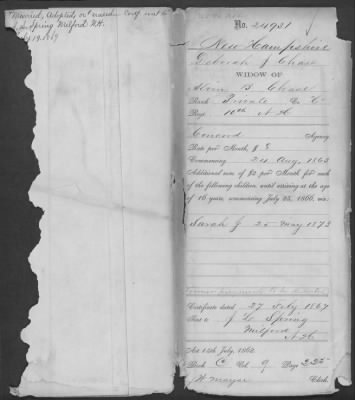 Married, Adopted, or married Cert sent to
Spring Milford N.H.
No. 24931
New Hampshire
Deborah J Chase
WIDOW OF
Alvin B Chase
Rank Private Co C
Reg't 10th N H
Concord Agency
Rate per Month, $8
Commencing 24 Aug. 1863
Additional sum of $2 per Month for each
of the following children, until arriving at the age
of 16 years, commencing July 25, 1866, viz:
Sarah J 25 May 1873
Certificate dated 27 Feby 1867
Sent to J Lo Spring
Milford
N H
Act 14th July, 1862
Book C Vol. 9 Page 225
W Mayse Clerk.